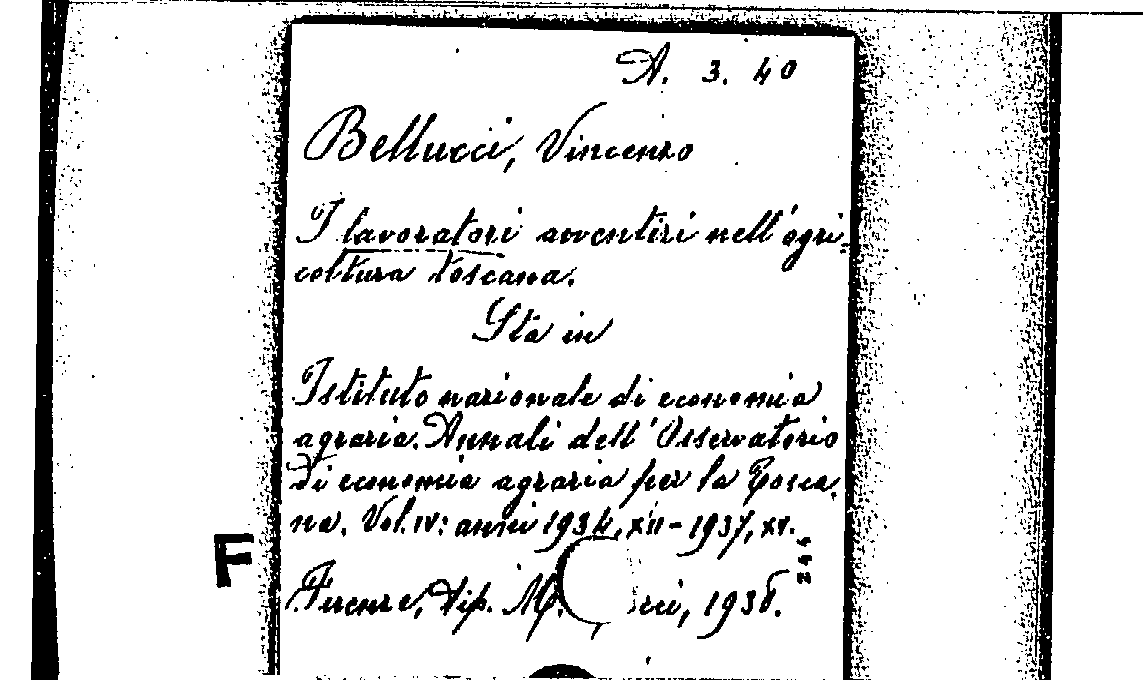 A. 3. 40
Bellucci, Vincenzo
I lavoratori avventizi nell'agri=
coltura toscana.
Sta in
Istituto nazionale di economia
agraria. Annali dell'Osservatorio
di economia agraria per la Tosca-
na. Vol. IV: anni 1934, XII - 1937, XV.
Firenze, Tip. M. 1938.
244
F